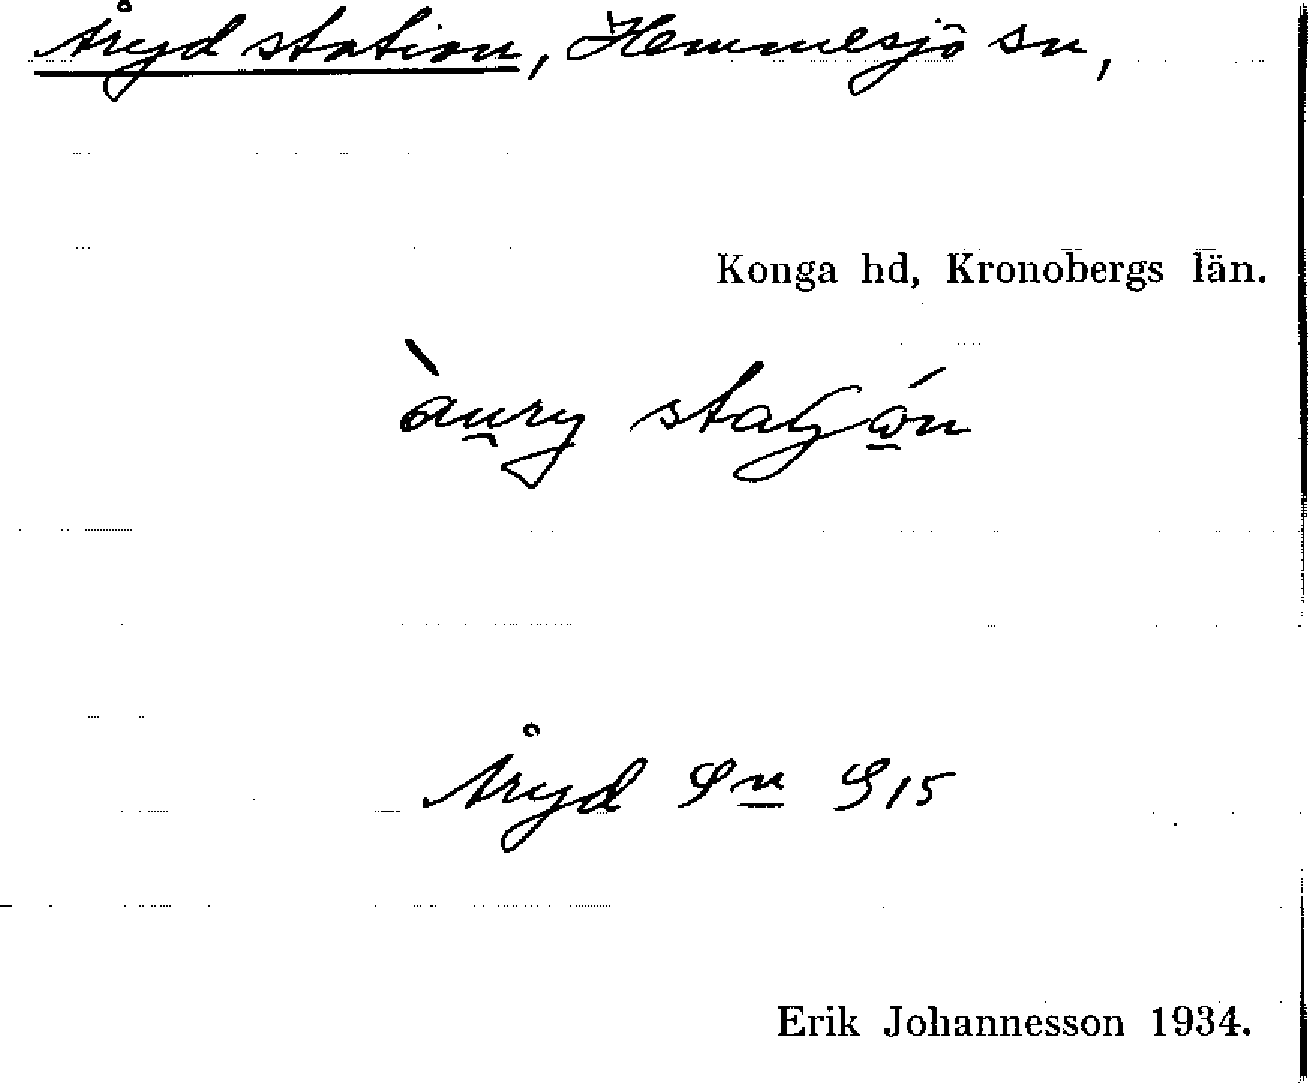 Åryd station, Hemmesjö sn,
Konga hd, Kronobergs län.
Åryd Sn S 15
Erik Johannesson 1934.